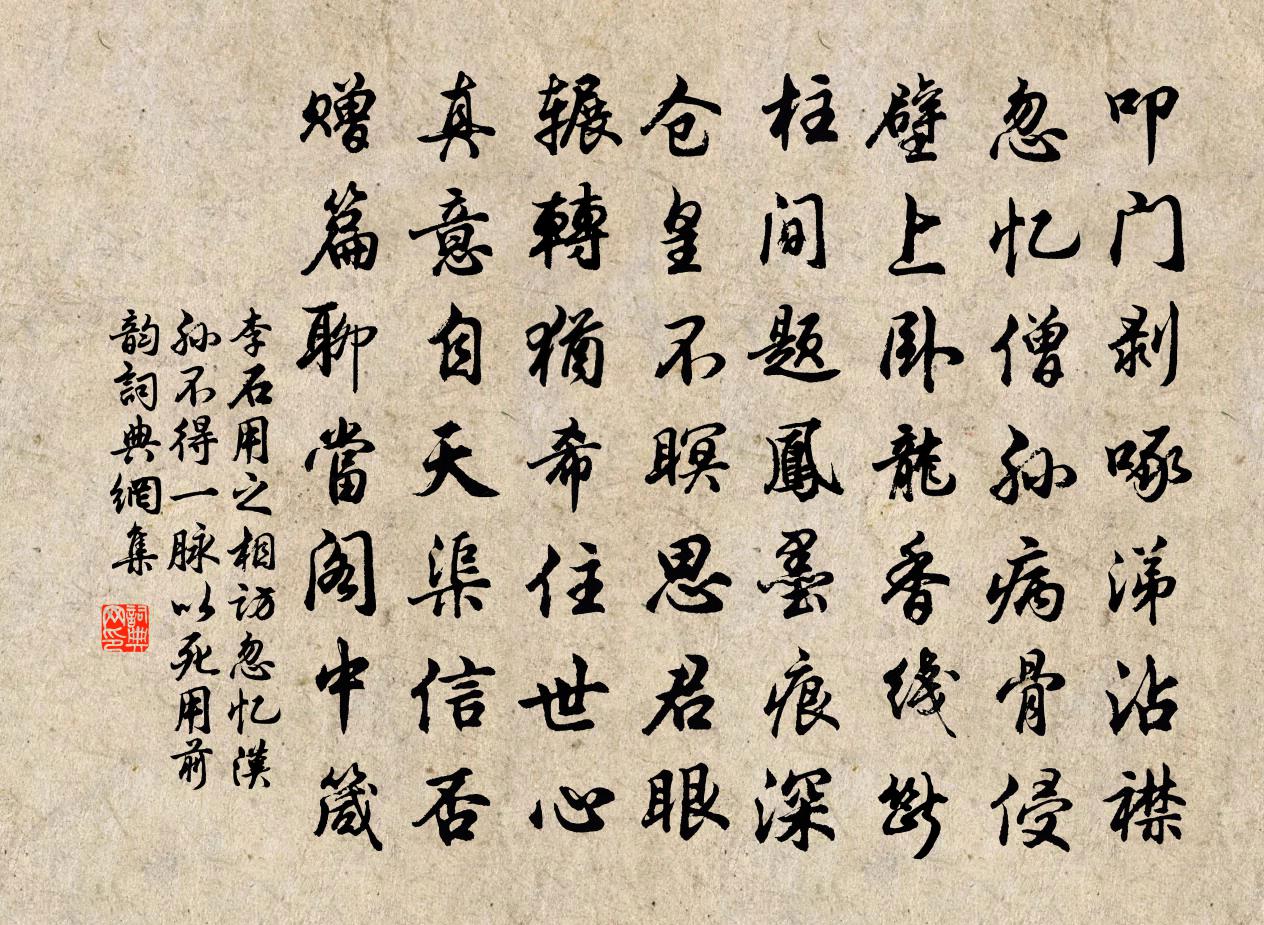 叩门剥啄涕沾襟
忽忆僧孙病骨侵
壁上卧龙香线断
柱间题凤墨痕深
仓皇不瞑思君眼
辗转犹希住世心
真意自天渠信否
赠篇聊当阁中箴
李石用之相访忽忆汉
孙不得一脉以死用前
韵词典网集
词典网印